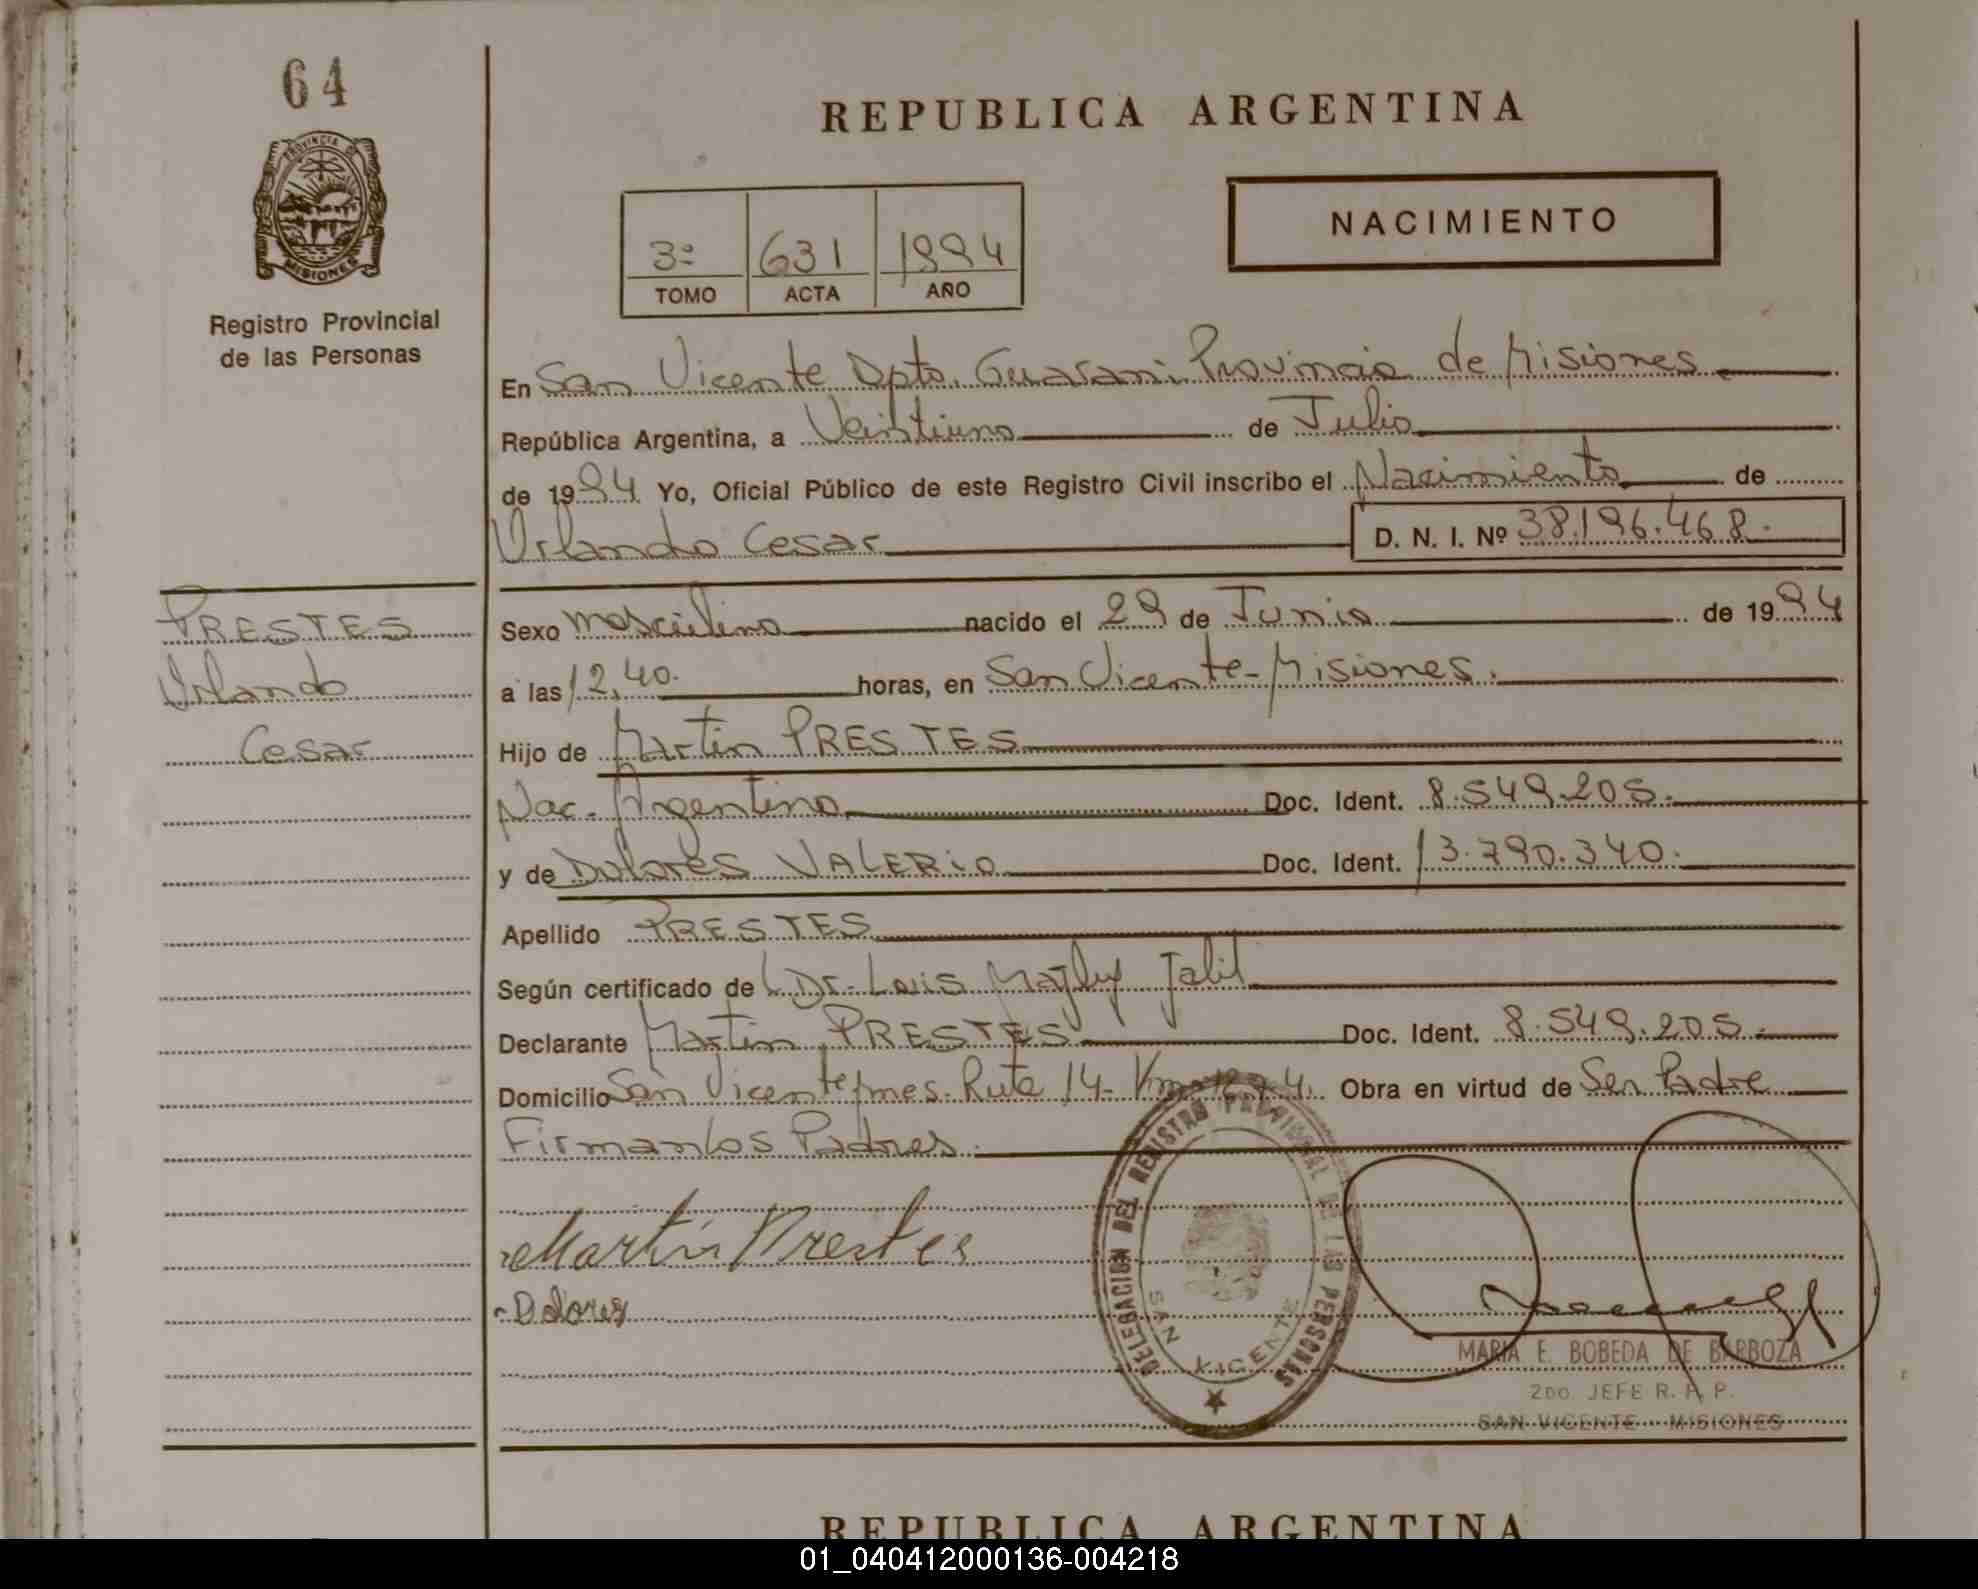 64
PROVINCIA DE
MISIONES
Registro Provincial
de las Personas
REPUBLICA ARGENTINA
NACIMIENTO
3º 631 1994
TOMO ACTA AÑO
En San Vicente Dpto. Guarani Provincia de Misiones
República Argentina, a Veintiuno de Julio
de 1994 Yo, Oficial Público de este Registro Civil inscribo el Nacimiento de
Urlando Cesar D. N. I. Nº 38.196.468.
PRESTES
Urlando
Cesar
Sexo masculino nacido el 29 de Junio de 1994
a las 12,40. horas, en San Vicente-Misiones.
Hijo de Martin PRESTES
Nac. Argentino Doc. Ident. 8.549.205.
y de Dolores VALERIO Doc. Ident. 13.790.340.
Apellido PRESTES
Según certificado de Dr. Luis Jalil
Declarante Martin PRESTES Doc. Ident. 8.549.205.
Domicilio San Vicente Mnes. Ruta 14- Km Obra en virtud de Ser Padre
Firman los Padres.
Martín Prestes
Dolores
DELEGACION DEL REGISTRO PROVINCIAL DE LAS PERSONAS
SAN VICENTE
MARIA E. BOBEDA DE BARBOZA
2DO. JEFE R. P. P.
SAN VICENTE - MISIONES
REPUBLICA ARGENTINA
01_040412000136-004218